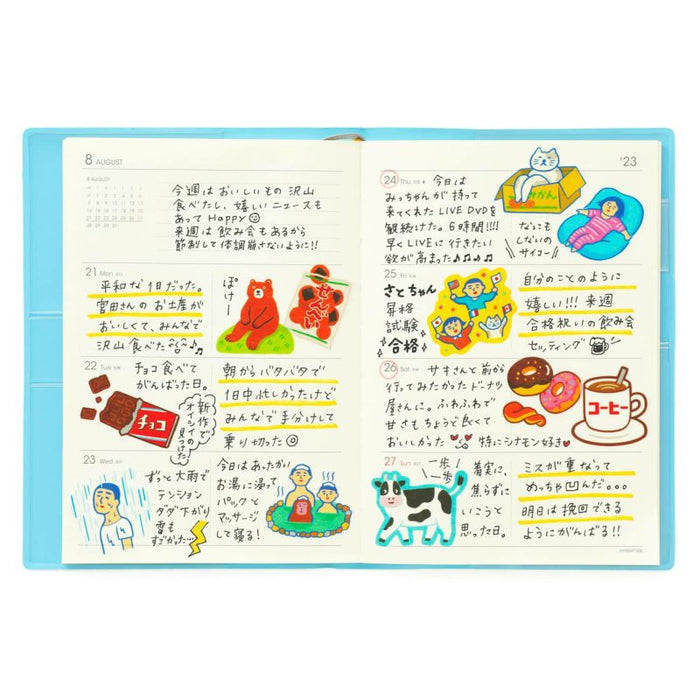 8 AUGUST
8 AUGUST
今週はおいしいもの沢山
食べたし、嬉しいニュースも
あってHappy
来週は飲み会もあるから
節制して体調崩さないように!!
21 Mon
平和な1日だった。
宮田さんのお土産が
おいしくて、みんなで
沢山食べた
ぽけー
せんべい
22 Tue
チョコ食べて
がんばった日。
チョコ
新作で
オイシイの
見つけた
朝からバタバタで
1日中忙しかったけど
みんなで手分けして
乗り切った
23 Wed
ずっと大雨で
テンション
ダダ下がり
雷も
すごかった…
今日はあったかい
お湯に浸って
パックと
マッサージ
して寝る!
'23
24 Thu
今日は
みっちゃんが持って
来てくれたLIVE DVDを
観続けた。6時間!!!!
早くLIVEに行きたい
欲が高まった♪♪♪♪
みかん
なにも
しないの
サイコー
25 Fri
さとちゃん
昇格
試験
合格
自分のことのように
嬉しい!!! 来週
合格祝いの飲み会
セッティング
26 Sat
サキさんと前から
行ってみたかったドーナツ
屋さんに。ふわふわで
甘さもちょうど良くて
おいしかった 特にシナモン好き♥
コーヒー
27 Sun
一歩
一歩
着実に、
焦らずに
いこうと
思った日。
ミスが重なって
めっちゃ凹んだ...
明日は挽回できる
ようにがんばる!!